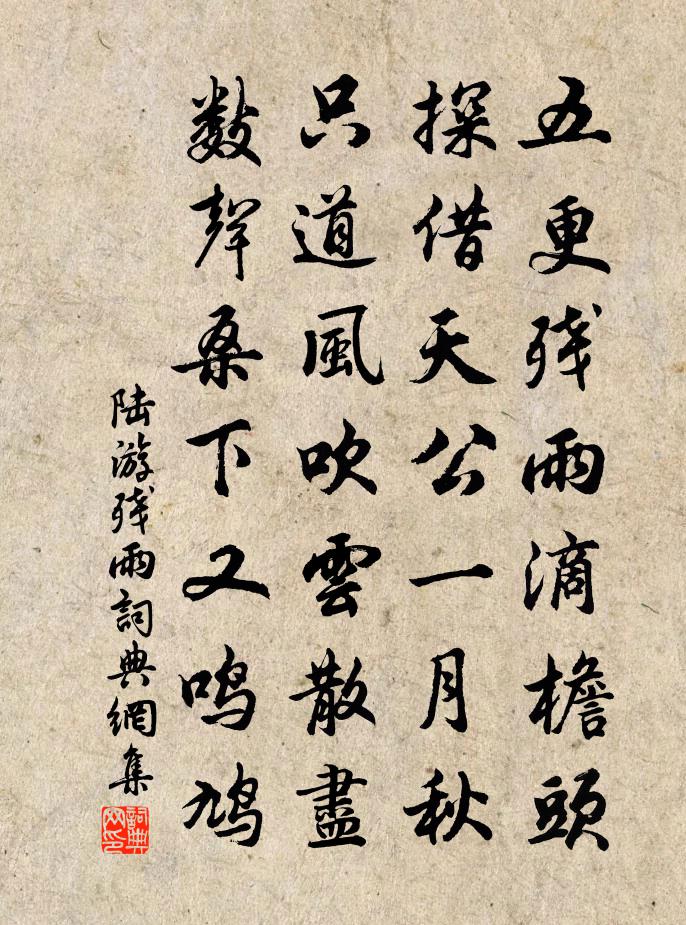 五更残雨滴檐頭
探借天公一月秋
只道風吹雲散盡
数聲桑下又鳴鳩
陆游残雨詞典網集
詞典网印